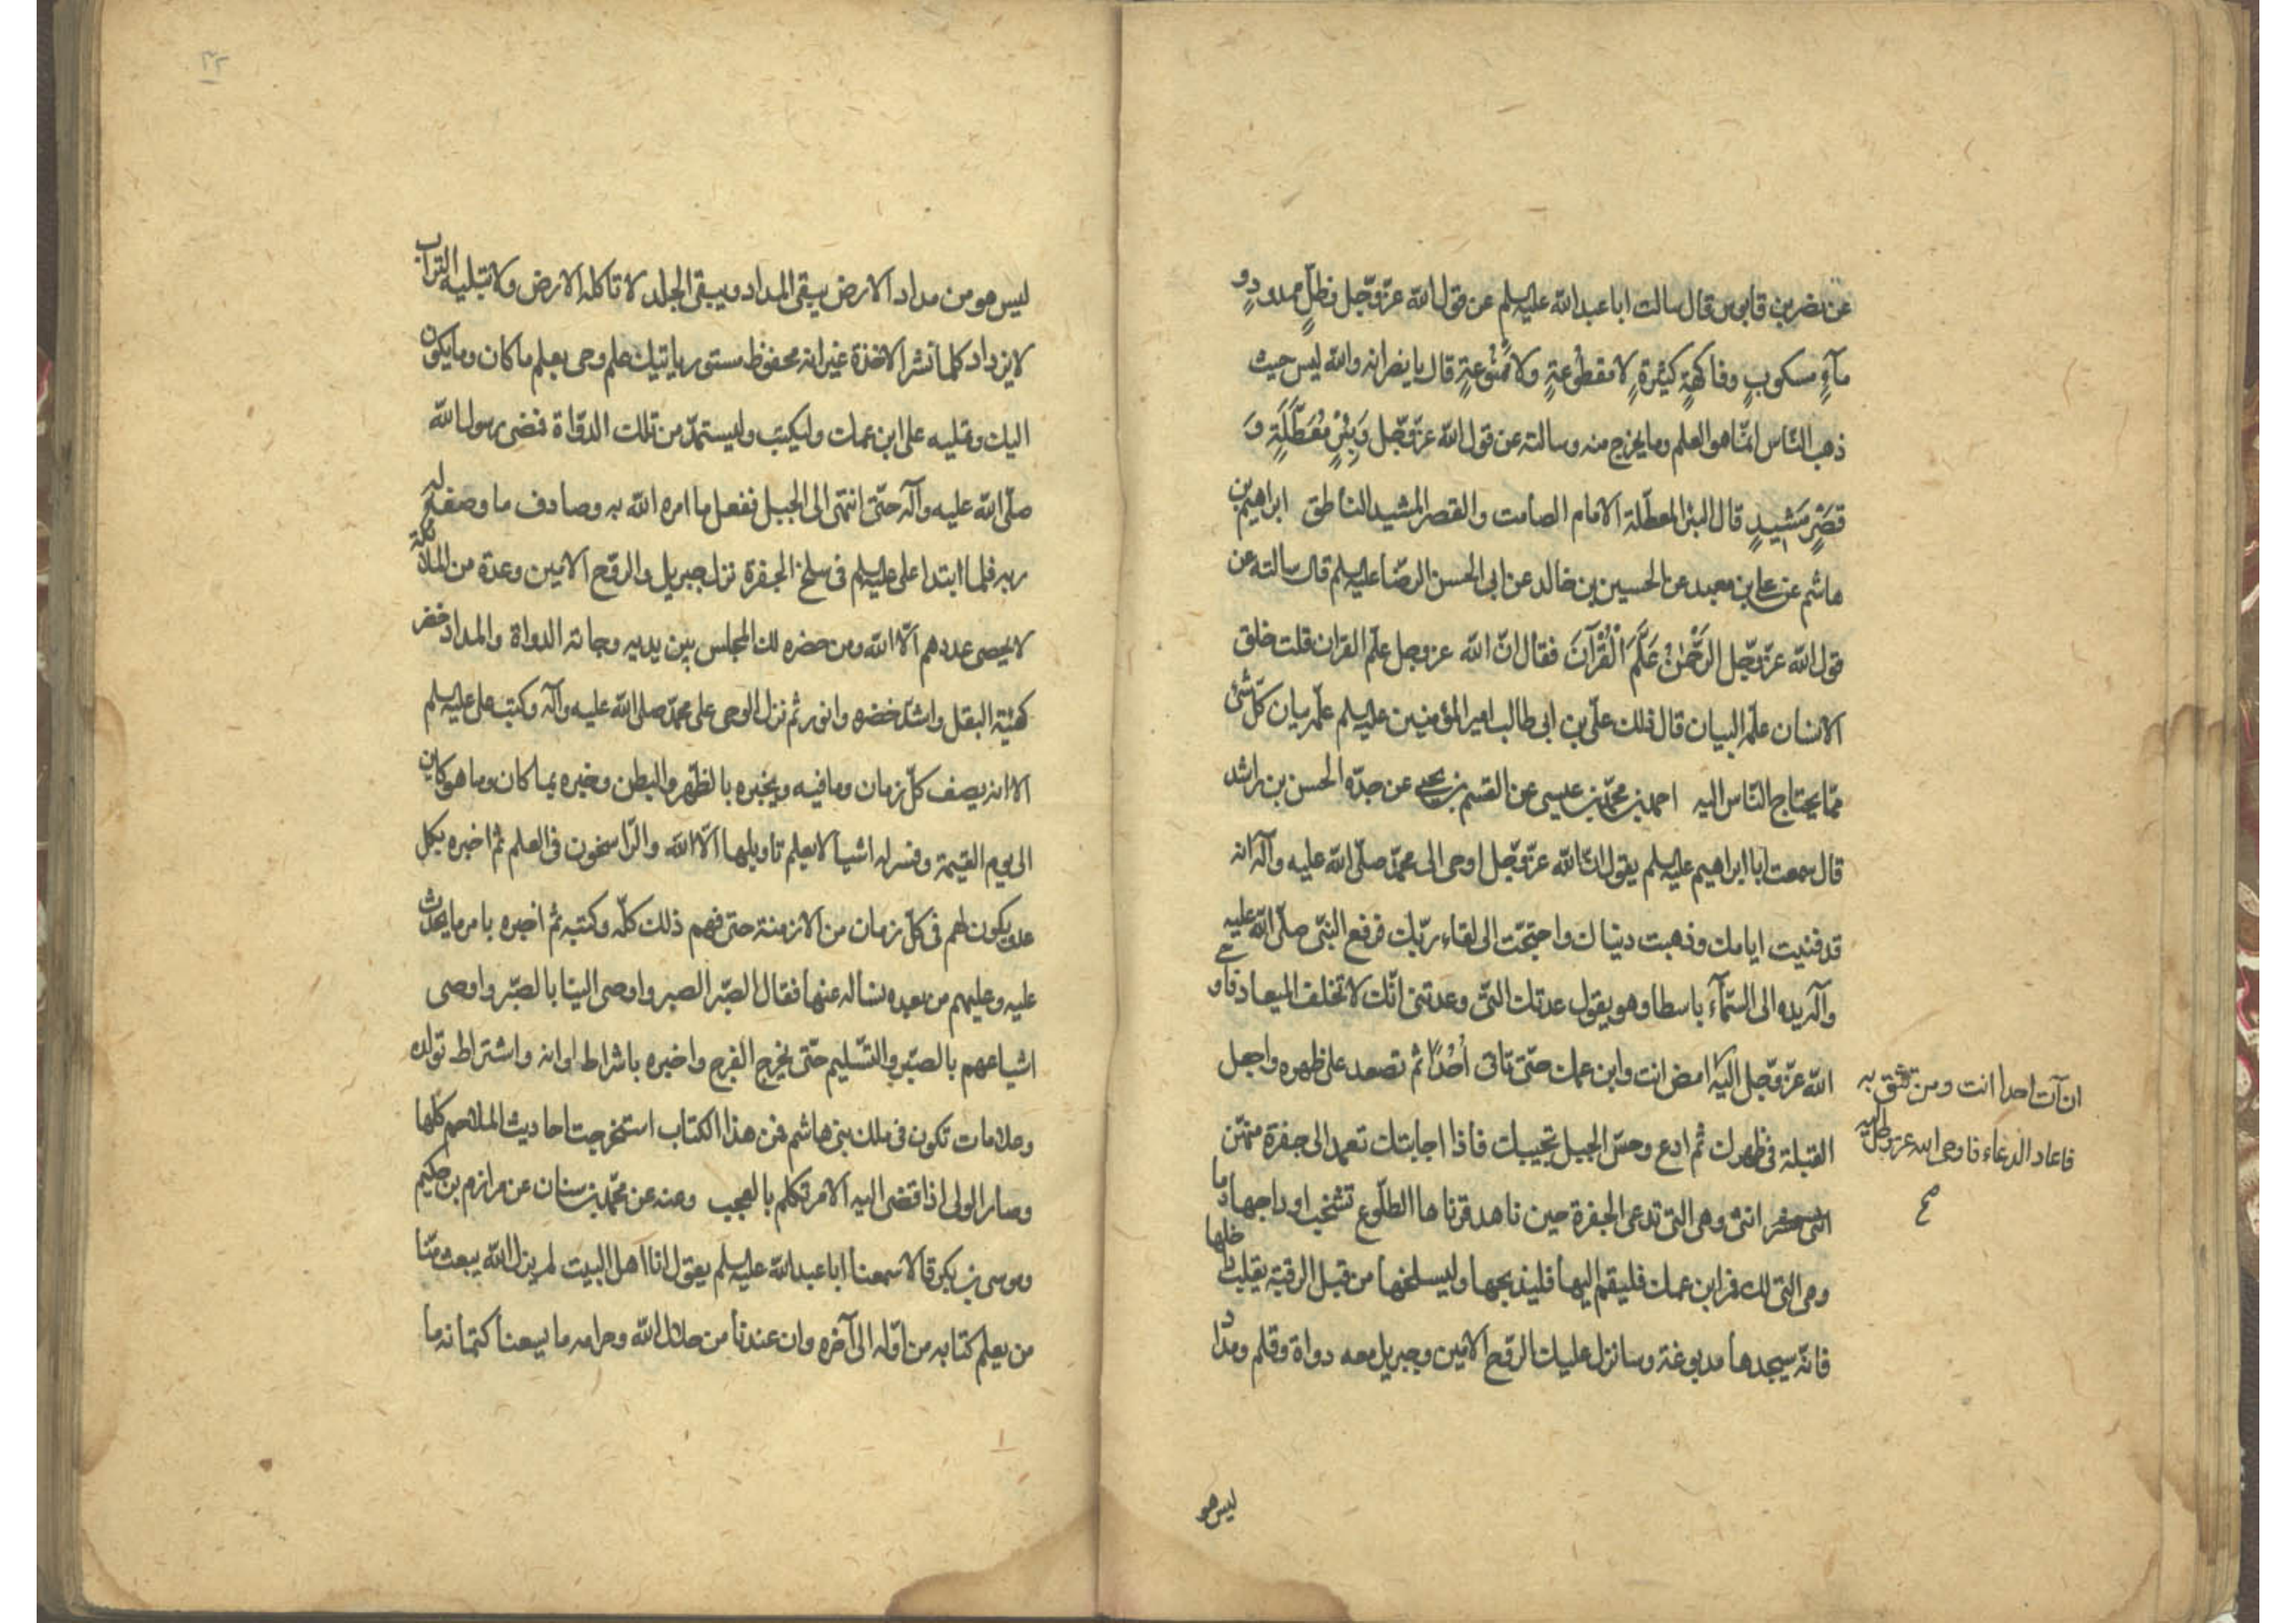 عن نضر بن قابوس قال سالت ابا عبد الله عليه السلم عن قول الله عزّ وجّل وظلٍّ ممدودٍ و
مآءٍ مسكوبٍ وفاكهةٍ كثيرةٍ لا مقطوعةٍ ولا ممنوعةٍ قال يا نضر انه والله ليس حيث
ذهب النّاس انّما هو العلم وما يخرج منه وسالته عن قول الله عزّ وجّل وَبِئْرٍ مُعَطَّلَةٍ وَ
قَصْرٍ مَشيدٍ قال البئر المعطّلة الامام الصامت والقصر المشيد الناطق ابراهيم بن
هاشم عن على بن معبد عن الحسين بن خالد عن ابى الحسن الرضا عليه السلم قال سالته عن
قول الله عزّ وجّل الرَّحْمٰنُ عَلَّمَ الْقُرْآنَ فقال انّ الله عز وجل علّم القران قلت خلق
الانسان علّمه البيان قال ذلك علىّ بن ابى طالب امير المؤمنين عليه السلم علّمه بيان كلّ شئ
ممّا يحتاج النّاس اليه احمد بن محمّد بن عيسى عن القسم بن يحيى عن جدّه الحسن بن راشد
قال سمعت ابا ابراهيم عليه السلم يقول انّ الله عزّ وجّل اوحى الى محمّد صلّى الله عليه وآله انه
قد فنيت ايامك وذهبت دنياك واحتجت الى لقاء ربّك فرفع النبّى صلّى الله عليه
وآله يده الى السّمآء باسطا وهو يقول عدتك التى وعدتنى انّك لا تخلف الميعاد فاوحى
الله عزّ وجّل اليه امض انت وابن عمك حتّى تاتى أُحُدًا ثم تصعد على ظهره واجعل
القبلة فى ظهرك ثم ادع وحسّ الجبل تجيبك فاذا اجابتك تعمد الى جفرة منهنّ
انثى وهى التى تدعى الجفرة حين ناهد قرناها الطلوع تشخب اوداجها دما
وهى التى لك فمر ابن عمك فليقم اليها فليذبحها وليسلخها من قبل الرقبة يقلب داخلها
فانّه سيجدها مدبوغة وسانزل عليك الروّح الامين وجبريل معه دواة وقلم ومداد
ليس هو
ان آت احدا انت ومن تثق به
فاعاد الدعاء فاوحى الله عز وجل اليه
صح
٢٢
ليس هو من مداد الارض يبقى المداد ويبقى الجلد لا تاكله الارض ولا تبليه التراب
لا يزداد كلما نشر الا خذة غير انه محفوظ مستور ياتيك علم وحى بعلم ما كان وما يكون
اليك وتمليه على ابن عمك وليكتب وليستمدّ من تلك الدوّاة فمضى رسول الله
صلّى الله عليه وآله حتّى انتهى الى الجبل ففعل ما امره الله به وصادف ما وصفه له
ربه فلما ابتدا على عليه السلم فى سلخ الجفرة نزل جبريل والروّح الامين وعدة من الملائكة
لا يحصى عددهم الّا الله ومن حضره ذلك المجلس بين يديه وجائته الدواة والمداد خضر
كهيئة البقل واشدّ خضره وانور ثم نزل الوحى على محمّد صلى الله عليه وآله وكتب على عليه السلم
الا انه يصف كلّ زمان وما فيه ويخبره بالظّهر والبطن وخبره بما كان وما هو كاين
الى يوم القيمة وفسر له اشيا لا يعلم تاويلها الّا الله والرّاسخون فى العلم ثم اخبره بكل
عدو يكون لهم فى كلّ زمان من الازمنة حتى فهم ذلك كلّه وكتبه ثم اخبره بامر ما يحدث
عليه وعليهم من بعده نساله عنها فقال الصّبر الصبر واوصى الينا بالصّبر واوصى
اشياعهم بالصّبر والتّسليم حتّى يخرج الفرج واخبره باشراط اوانه واشتراط تولده
وعلامات تكون فى ملك بنى هاشم فمن هذا الكتاب استخرجت احاديث الملاحم كلّها
وصار الولى اذا قضى اليه الامر تكلم بالعجب وعنه عن محمّد بن سنان عن مرازم بن حكيم
وموسى بن بكر قالا سمعنا ابا عبد الله عليه السلم يقول انا اهل البيت لم يزل الله يبعث منّا
من يعلم كتابه من اوّله الى آخره وان عندنا من حلال الله وحرامه ما يسعنا كتمانه ما